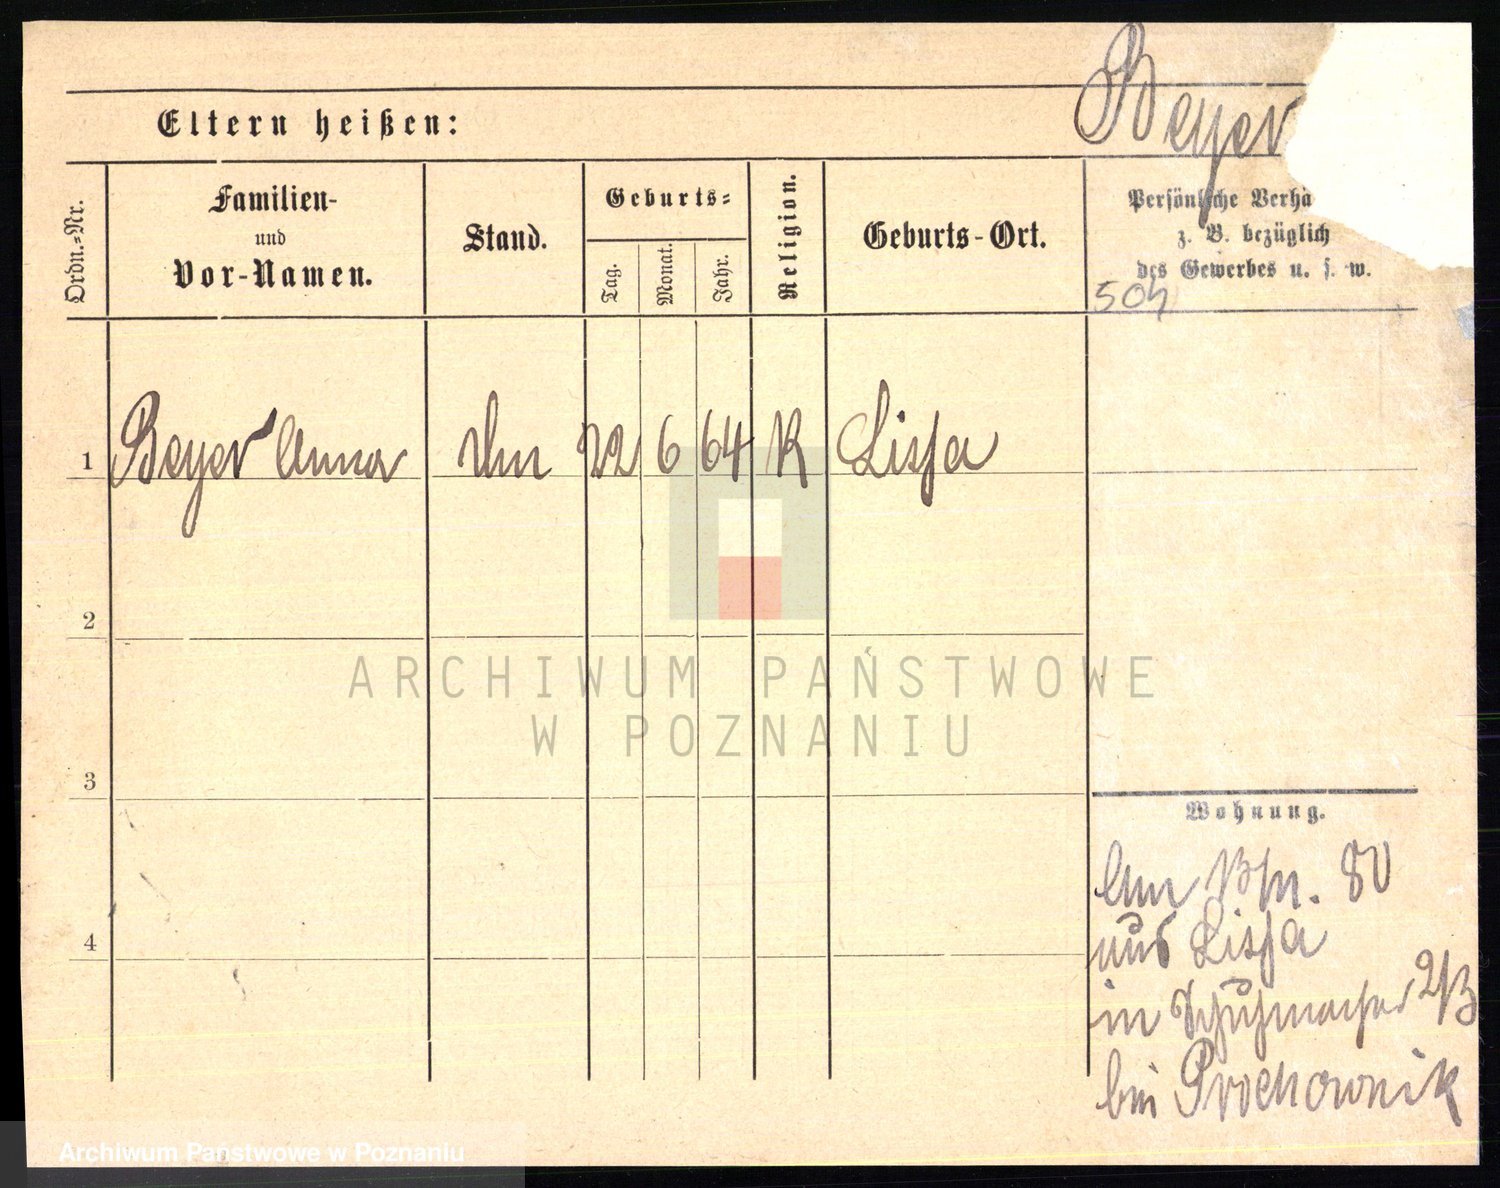 Beyer
Eltern heißen:
Ordn.=Nr.
Familien-
und
Vor-Namen.
Stand.
Geburts=
Tag.
Monat.
Jahr.
Religion.
Geburts-Ort.
Persönliche Verhä
z. B. bezüglich
des Gewerbes u. s. w.
504
1 Beyer Anna 22 6 64 K Lissa
2
3
4
Wohnung.
80
aus Lissa
in Schuhmacher
bei Prochownik
ARCHIWUM PAŃSTWOWE
W POZNANIU
Archiwum Państwowe w Poznaniu